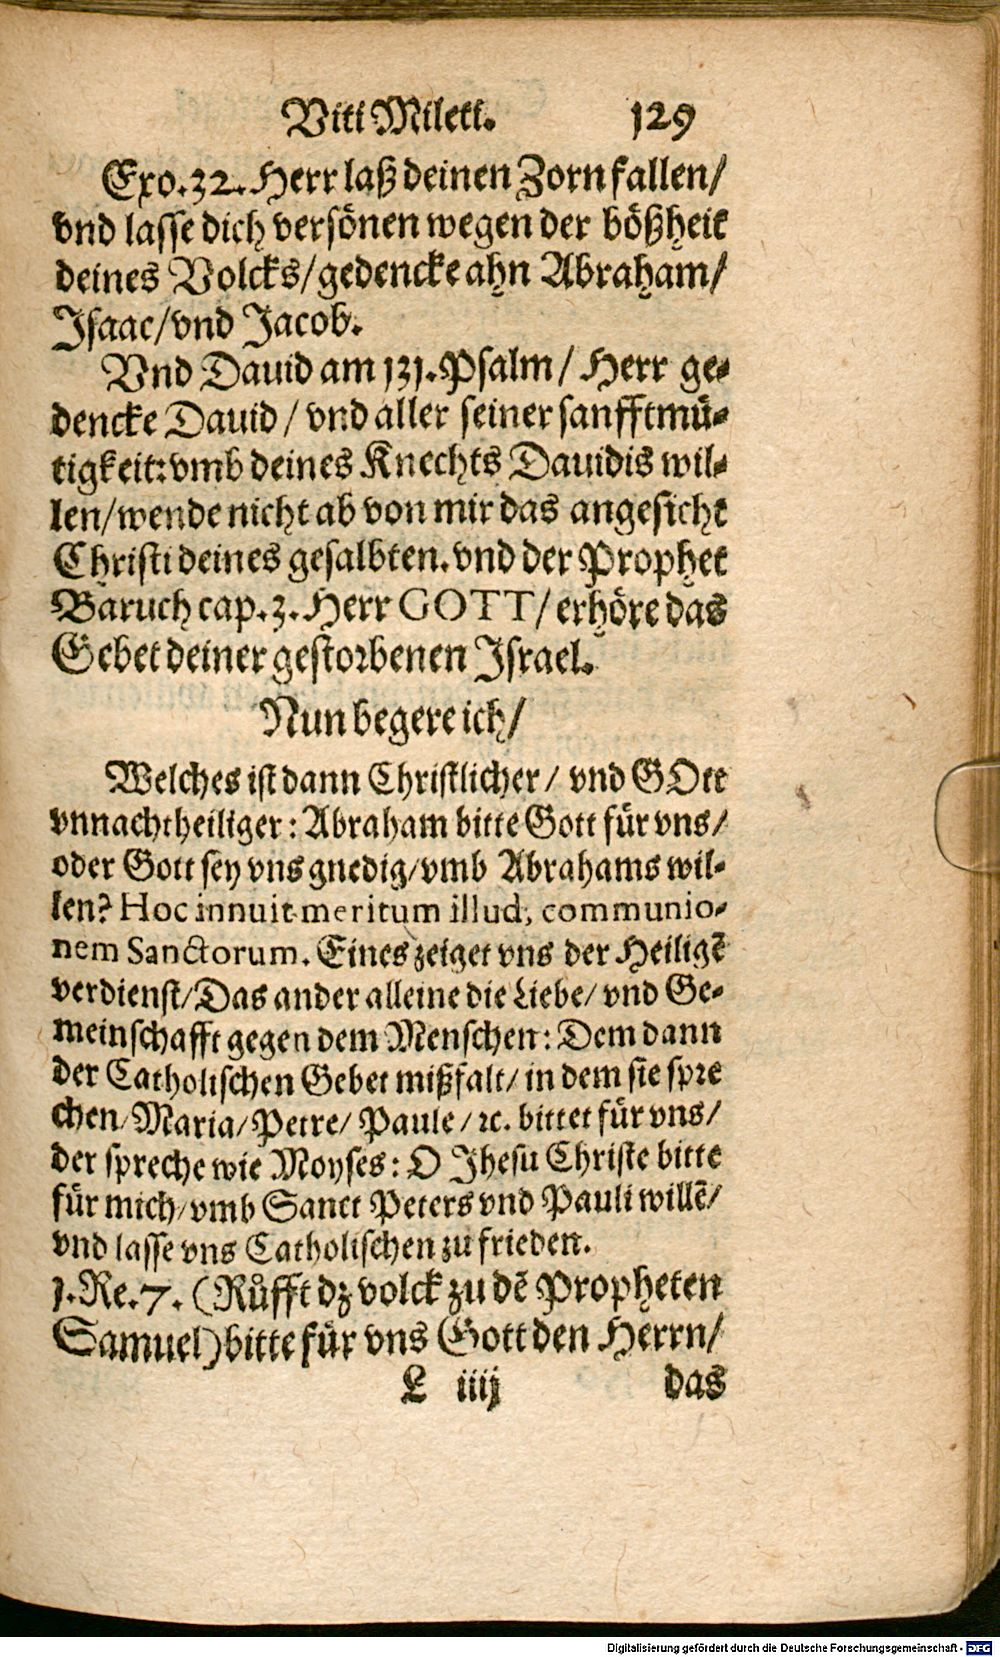 Viti Mileti. 129
Exo.32. Herr laß deinen Zorn fallen/
vnd lasse dich versönen wegen der bößheit
deines Volcks/gedencke ahn Abraham/
Isaac/vnd Jacob.
Vnd Dauid am 131. Psalm/ Herr ge-
dencke Dauid/ vnd aller seiner sanfftmü-
tigkeit: vmb deines Knechts Dauidis wil-
len/wende nicht ab von mir das angesicht
Christi deines gesalbten. vnd der Prophet
Baruch cap. 3. Herr GOTT/ erhöre das
Gebet deiner gestorbenen Israel.
Nun begere ich/
Welches ist dann Christlicher/ vnd GOtt
vnnachtheiliger: Abraham bitte Gott für vns/
oder Gott sey vns gnedig/vmb Abrahams wil-
len? Hoc innuit meritum illud, communio-
nem Sanctorum. Eines zeiget vns der Heiligẽ
verdienst/Das ander alleine die Liebe/ vnd Ge-
meinschafft gegen dem Menschen: Dem dann
der Catholischen Gebet mißfalt/ in dem sie spre
chen/Maria/Petre/ Paule/ ꝛc. bittet für vns/
der spreche wie Moyses: O Jhesu Christe bitte
für mich/vmb Sanct Peters vnd Pauli willẽ/
vnd lasse vns Catholischen zu frieden.
1. Re.7. (Růfft dz volck zu dẽ Propheten
Samuel) bitte für vns Gott den Herrn/
L iiij das
Digitalisierung gefördert durch die Deutsche Forschungsgemeinschaft - DFG